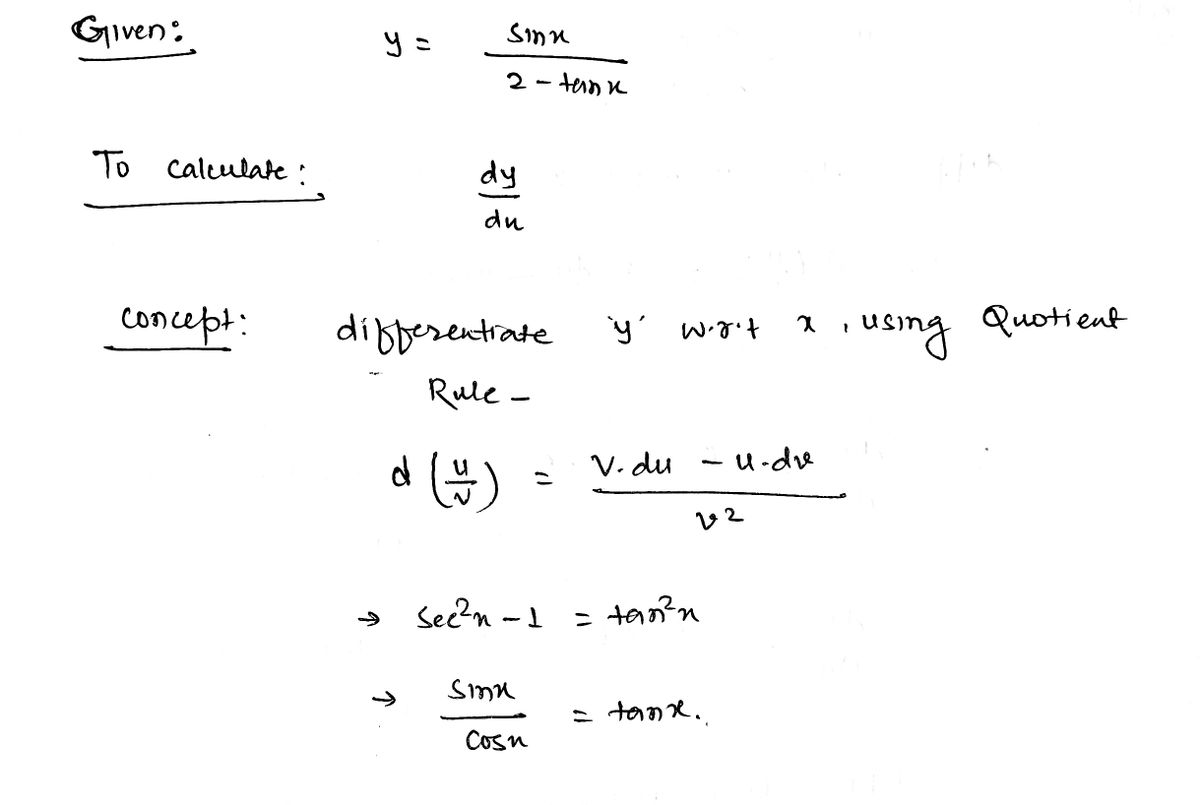 Given: y = sinx / 2 - tanx
To calculate: dy / dx
concept: differentiate 'y' w.r.t x, using Quotient
Rule -
d (u/v) = v.du - u.dv / v²
→ sec²x - 1 = tan²x
→ sinx / cosx = tanx.